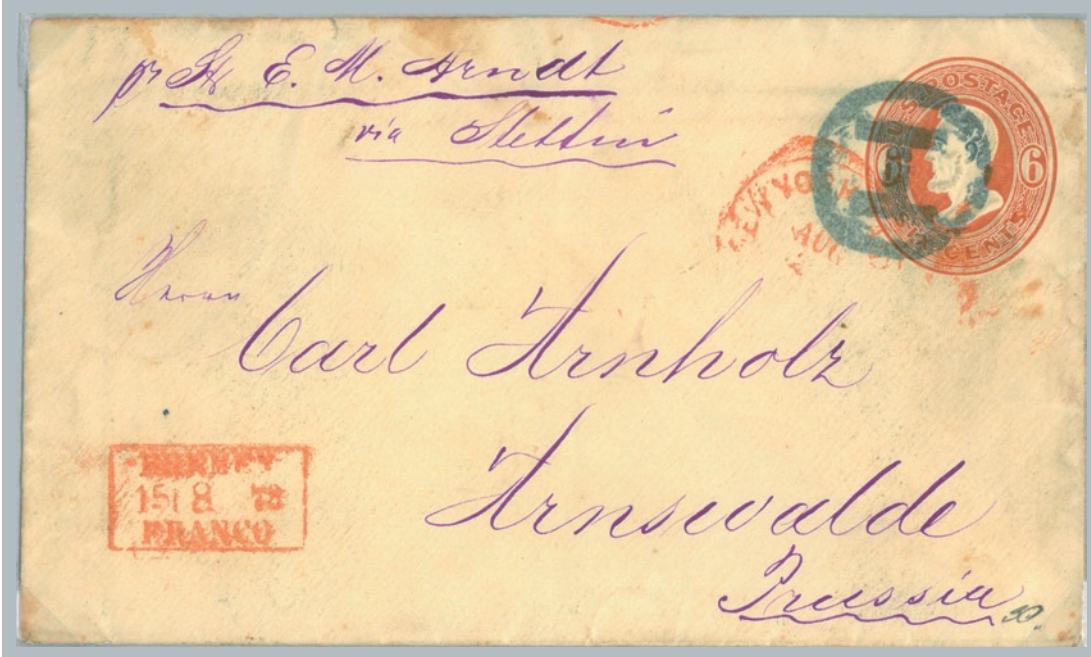 pr St. E. M. Arndt
via Stettin
POSTAGE
6 6
SIX CENTS
NEW YORK
AUG
Herrn
Carl Arnholz
Arnswalde
Prussia
BREMEN
15 8 73
FRANCO